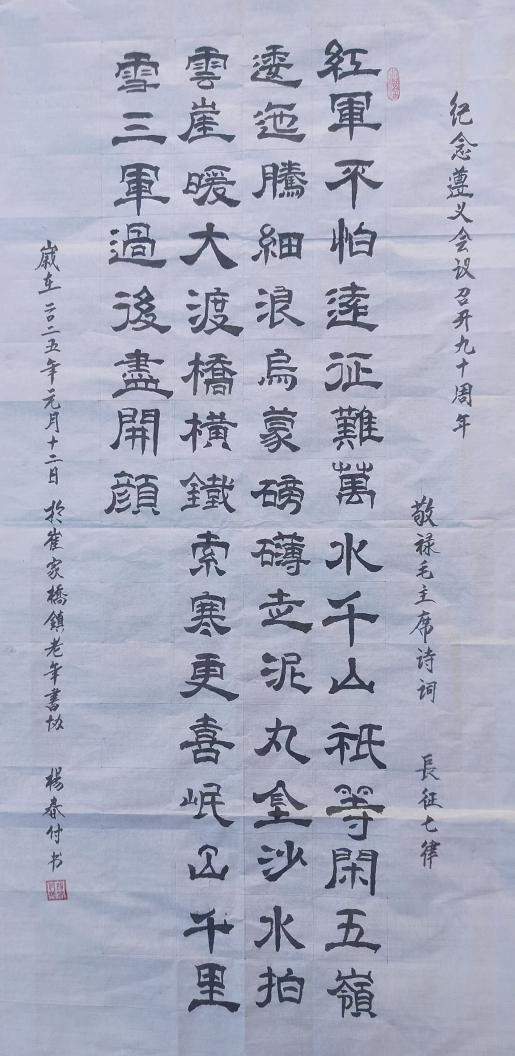 纪念遵义会议召开九十周年
敬禄毛主席诗词 長征七律
紅軍不怕遠征難萬水千山祇等閑五嶺
逶迤騰細浪烏蒙磅礴走泥丸金沙水拍
雲崖暖大渡橋橫鐵索寒更喜岷山千里
雪三軍過後盡開顔
歲在二〇二五年元月十二日 於崔家橋鎮老年書协 楊春付书